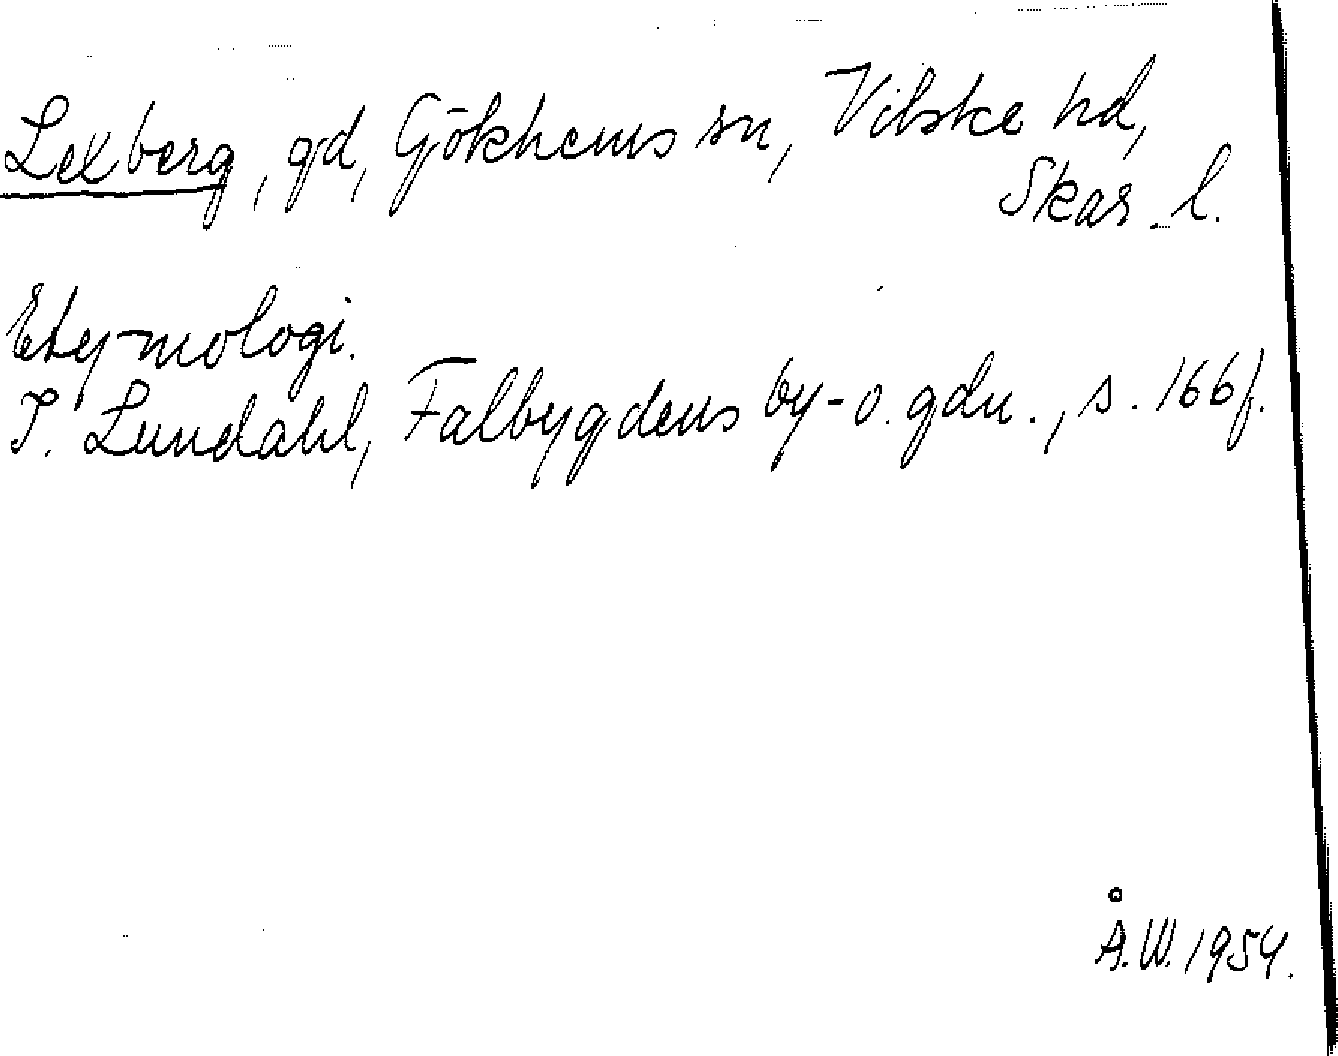 Lexberg, gd, Gökhems sn, Vilske hd,
Skar. l.
Etymologi.
I. Lundahl, Falbygdens by- o. gdn., s. 166f.
Å.W. 1954.